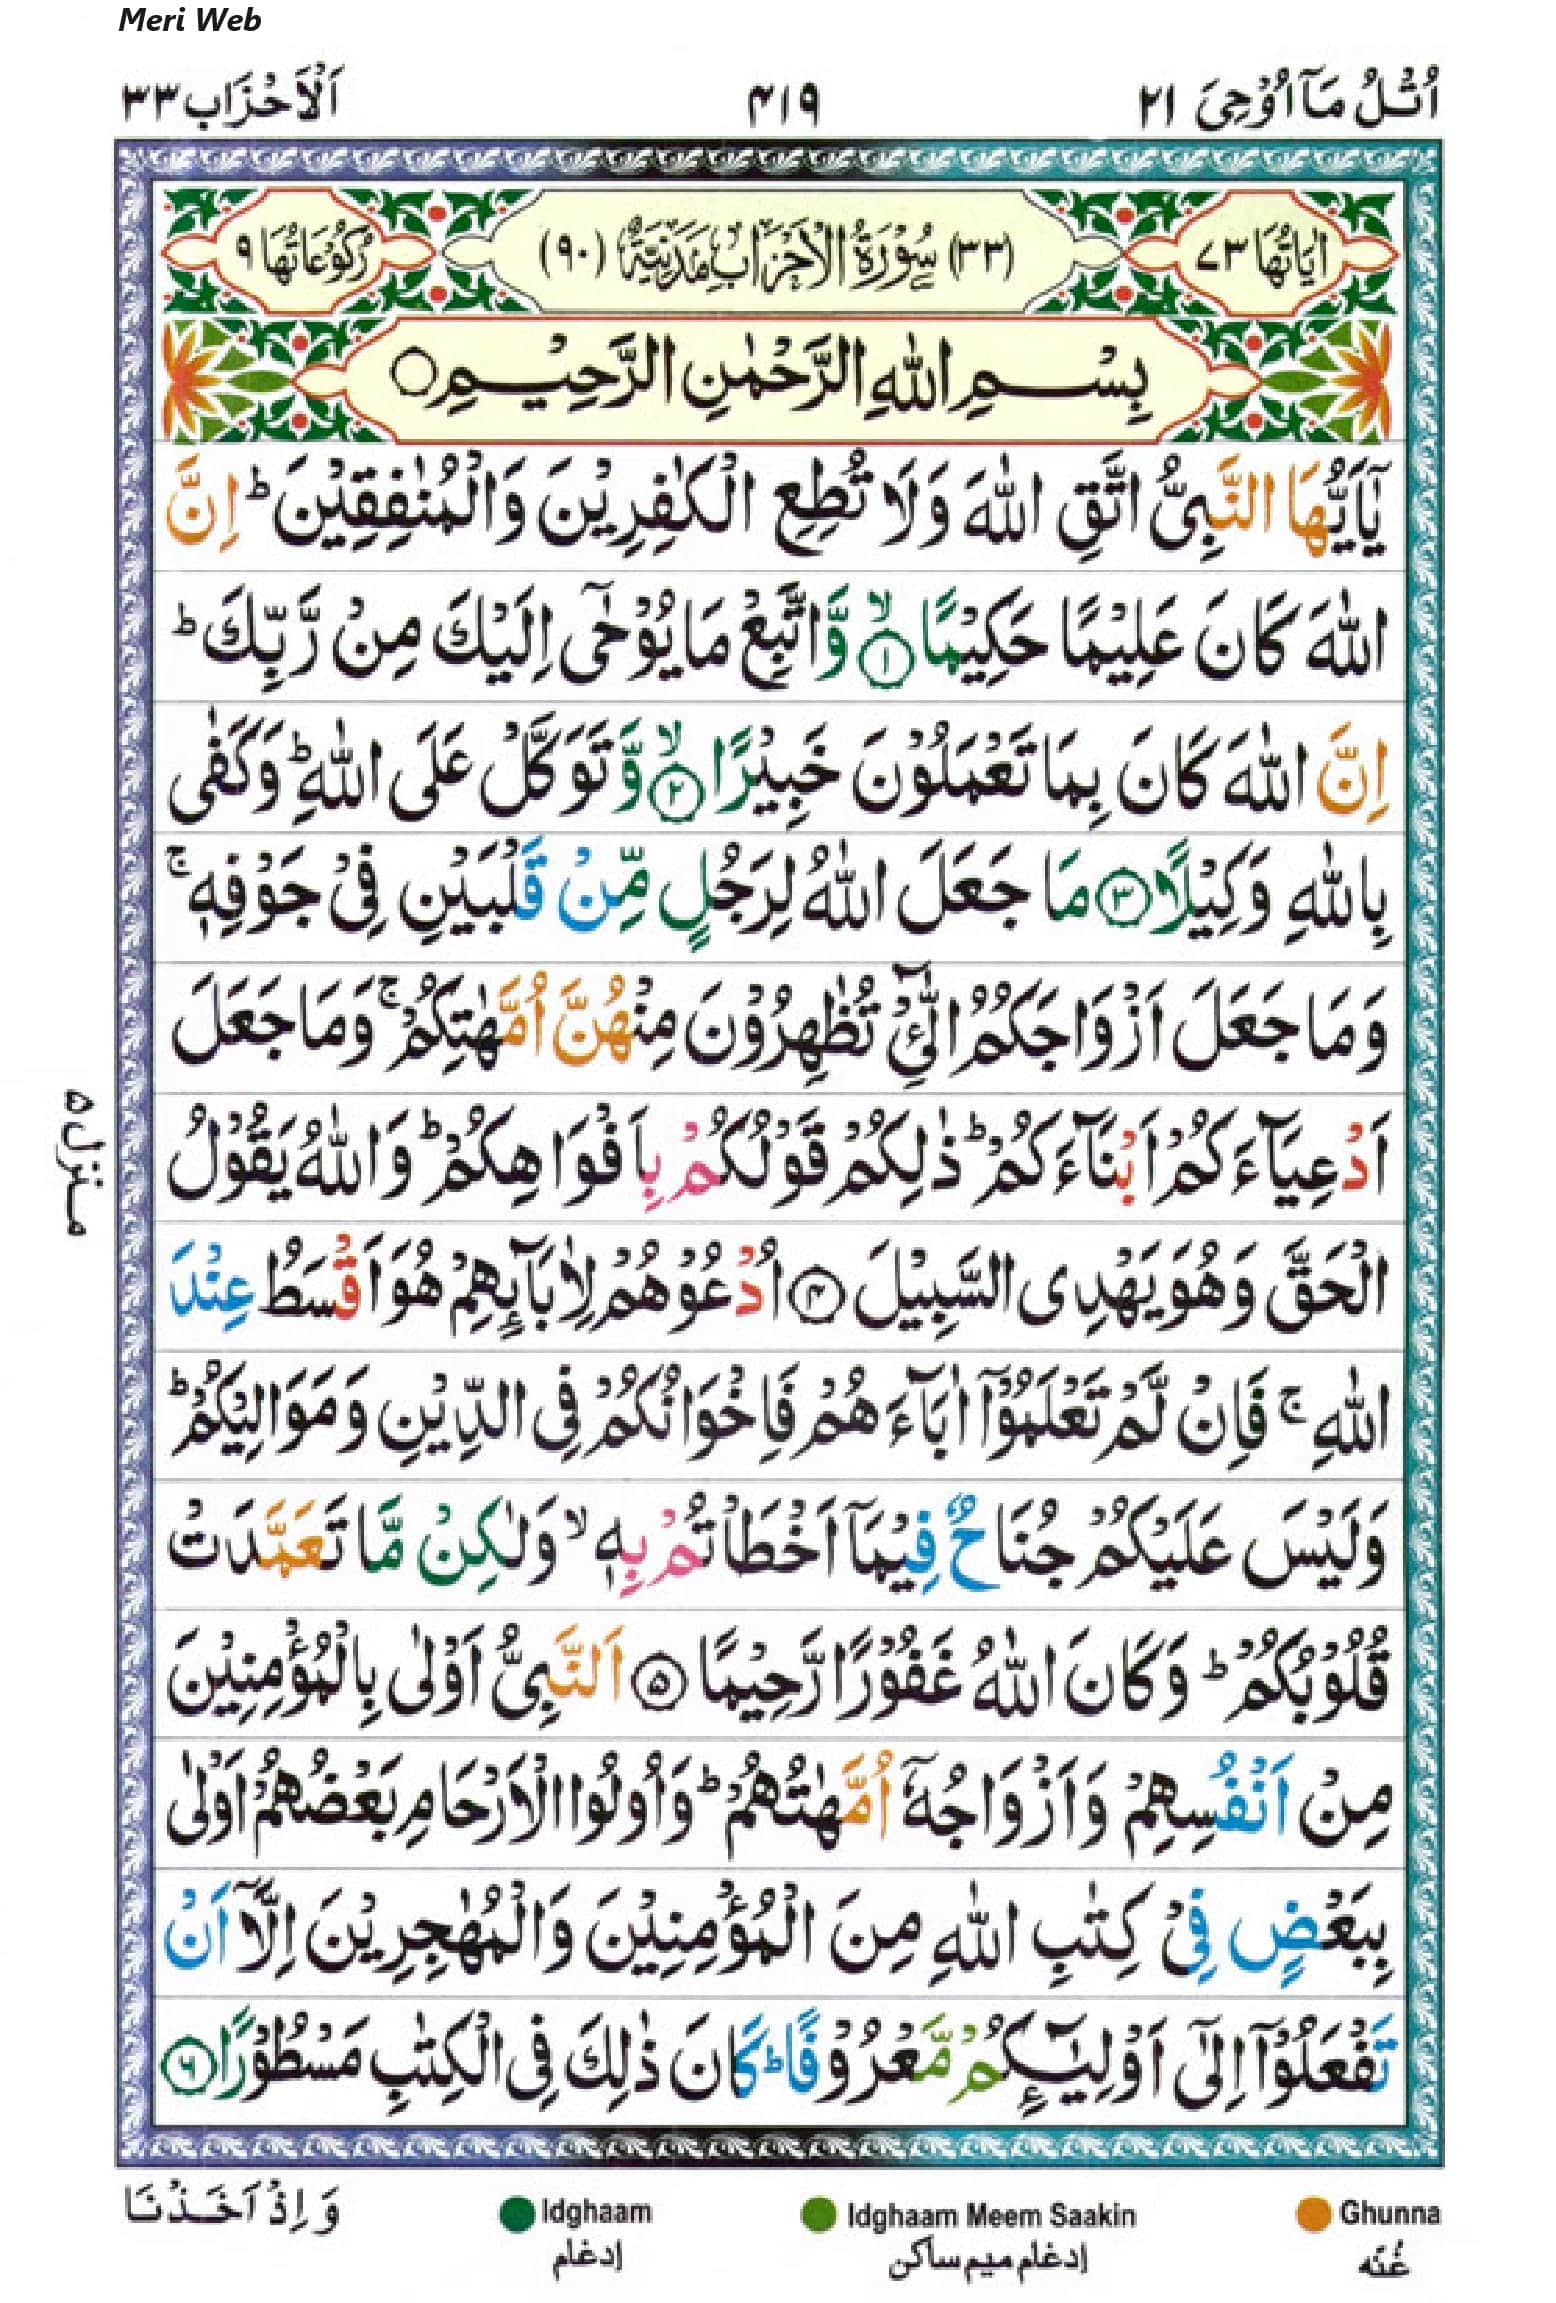 Meri Web
اُتْلُ مَاۤ اُوْحِیَ ۲۱ ۴۱۹ اَلْاَحْزَاب ۳۳
اٰیَاتُهَا ۷۳ (۳۳) سُوْرَةُ الْاَحْزَابِ مَدَنِیَّةٌ (۹۰) رُكُوْعَاتُهَا ۹
بِسْمِ اللّٰهِ الرَّحْمٰنِ الرَّحِیْمِ ○
یٰۤاَیُّهَا النَّبِیُّ اتَّقِ اللّٰهَ وَلَا تُطِعِ الْكٰفِرِیْنَ وَالْمُنٰفِقِیْنَ ؕ اِنَّ
اللّٰهَ كَانَ عَلِیْمًا حَكِیْمًا ۙ﴿۱﴾ وَّاتَّبِعْ مَا یُوْحٰۤی اِلَیْكَ مِنْ رَّبِّكَ ؕ
اِنَّ اللّٰهَ كَانَ بِمَا تَعْمَلُوْنَ خَبِیْرًا ۙ﴿۲﴾ وَّتَوَكَّلْ عَلَی اللّٰهِ ؕ وَكَفٰی
بِاللّٰهِ وَكِیْلًا ﴿۳﴾ مَا جَعَلَ اللّٰهُ لِرَجُلٍ مِّنْ قَلْبَیْنِ فِیْ جَوْفِهٖ ۚ
وَمَا جَعَلَ اَزْوَاجَكُمُ الّٰٓـِٔیْ تُظٰهِرُوْنَ مِنْهُنَّ اُمَّهٰتِكُمْ ۚ وَمَا جَعَلَ
اَدْعِیَآءَكُمْ اَبْنَآءَكُمْ ؕ ذٰلِكُمْ قَوْلُكُمْ بِاَفْوَاهِكُمْ ؕ وَاللّٰهُ یَقُوْلُ
الْحَقَّ وَهُوَ یَهْدِی السَّبِیْلَ ﴿۴﴾ اُدْعُوْهُمْ لِاٰبَآىِٕهِمْ هُوَ اَقْسَطُ عِنْدَ
اللّٰهِ ۚ فَاِنْ لَّمْ تَعْلَمُوْۤا اٰبَآءَهُمْ فَاِخْوَانُكُمْ فِی الدِّیْنِ وَمَوَالِیْكُمْ ؕ
وَلَیْسَ عَلَیْكُمْ جُنَاحٌ فِیْمَاۤ اَخْطَاْتُمْ بِهٖ ۙ وَلٰكِنْ مَّا تَعَمَّدَتْ
قُلُوْبُكُمْ ؕ وَكَانَ اللّٰهُ غَفُوْرًا رَّحِیْمًا ﴿۵﴾ اَلنَّبِیُّ اَوْلٰی بِالْمُؤْمِنِیْنَ
مِنْ اَنْفُسِهِمْ وَاَزْوَاجُهٗۤ اُمَّهٰتُهُمْ ؕ وَاُولُوا الْاَرْحَامِ بَعْضُهُمْ اَوْلٰی
بِبَعْضٍ فِیْ كِتٰبِ اللّٰهِ مِنَ الْمُؤْمِنِیْنَ وَالْمُهٰجِرِیْنَ اِلَّاۤ اَنْ
تَفْعَلُوْۤا اِلٰۤی اَوْلِیٰٓىِٕكُمْ مَّعْرُوْفًا ؕ كَانَ ذٰلِكَ فِی الْكِتٰبِ مَسْطُوْرًا ﴿۶﴾
منزل ۵
وَ اِذْ اَخَذْنَا
Idghaam Idghaam Meem Saakin Ghunna
إدغام إدغام ميم ساكن غُنّه